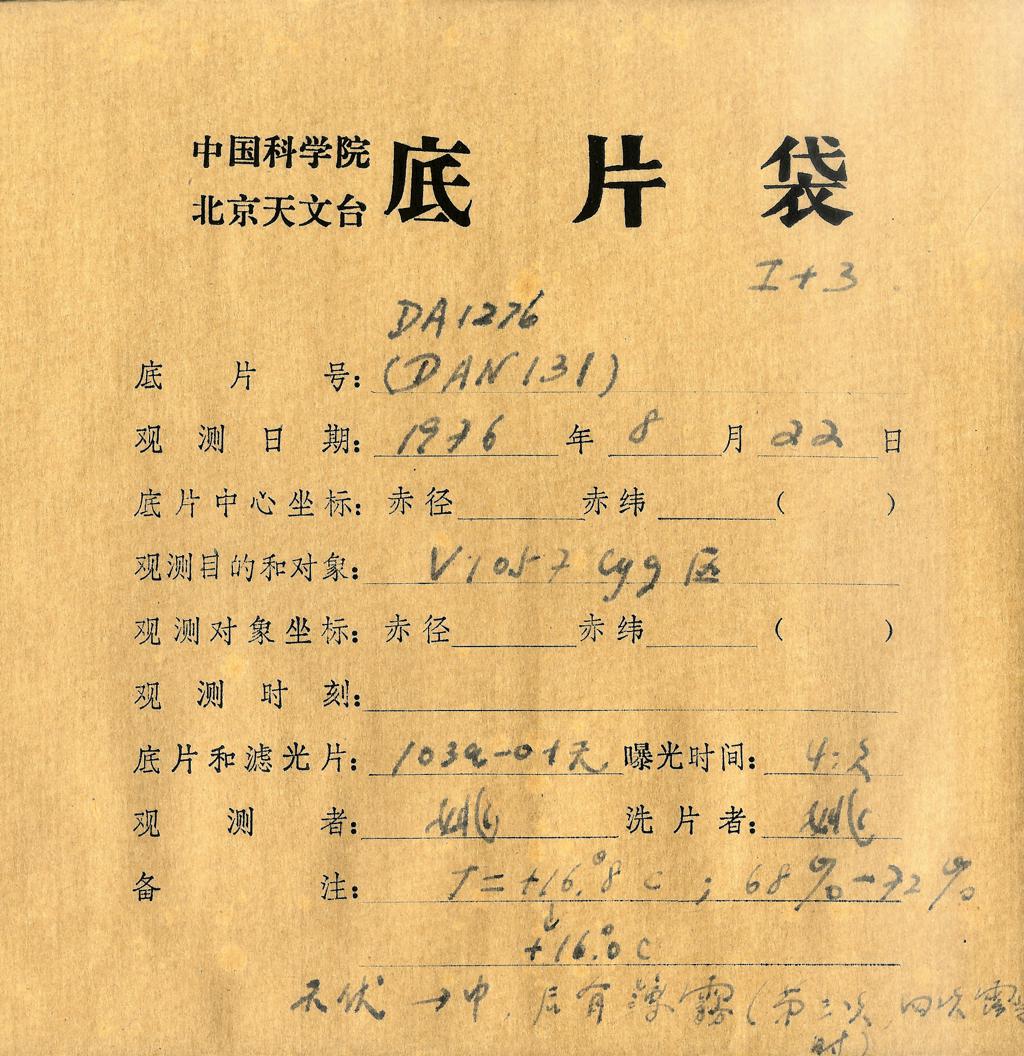 中国科学院
北京天文台
底片袋
I+3
DA1276
底片号：(DAN131)
观测日期：1976年8月22日
底片中心坐标：赤径 赤纬 ( )
观测目的和对象：V1057 Cyg 区
观测对象坐标：赤径 赤纬 ( )
观测时刻：
底片和滤光片：103a-O+无 曝光时间：4次
观测者： 洗片者：
备注：T=+16°.8 C ; 68%-72%
↓
+16°.0 C
→中，后有薄雾(第三次，四次露光
时)